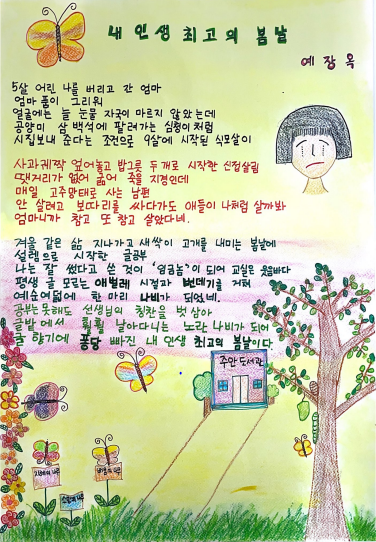 내 인생 최고의 봄날
예 장 옥
5살 어린 나를 버리고 간 엄마
엄마 품이 그리워
얼굴에는 늘 눈물 자국이 마르지 않았는데
공양미 삼백석에 팔려가는 심청이처럼
시집보내 준다는 조건으로 9살에 시작된 식모살이
사과궤짝 엎어놓고 밥그릇 두개로 시작한 신접살림
땟거리가 없어 굶어 죽을 지경인데
매일 고주망태로 사는 남편
안 살려고 보따리를 싸다가도 애들이 나처럼 살까봐
엄마니까 참고 또 참고 살았다네.
겨울 같은 삶 지나가고 새싹이 고개를 내미는 봄날에
설렘으로 시작한 글공부
나는 잘 썼다고 쓴 것이 '엉금놈'이 되어 교실은 웃음바다
평생 글 모르는 애벌레 시절과 번데기를 거쳐
예순여덟에 한 마리 나비가 되었네.
공부는 못해도 선생님의 칭찬을 벗 삼아
글밭에서 훨훨 날아다니는 노란 나비가 되어
꿈 향기에 퐁당 빠진 내 인생 최고의 봄날이다.
주안도서관